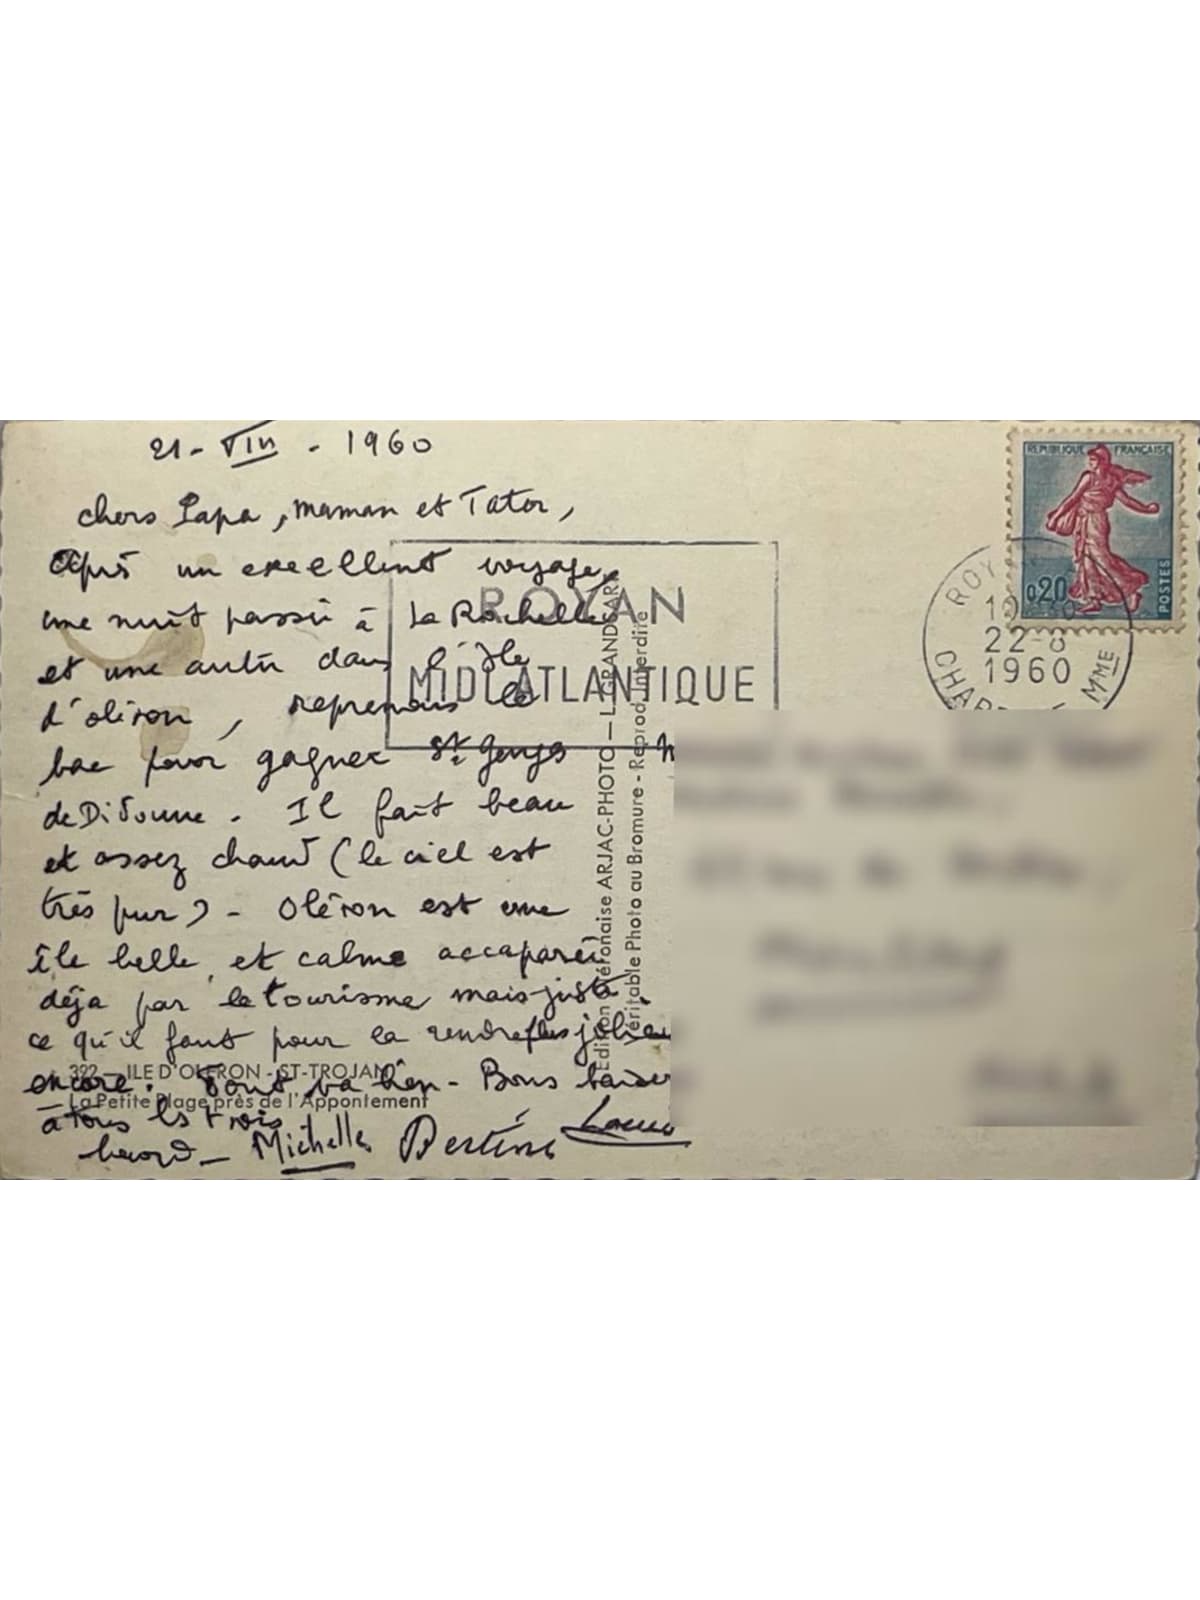 21 - VIII - 1960
chers Papa, maman et Tator,
Après un excellent voyage,
une nuit passée à La Rochelle
et une autre dans l'Île
d'oléron, reprenons le
bac pour gagner St Georges
de Didonne. Il fait beau
et assez chaud (le ciel est
très pur) - Oléron est une
île belle et calme accaparée
déja par le tourisme mais juste
ce qu'il faut pour la rendre plus jolie
encore. Tout va bien - Bons baisers
à tous les trois
Michelle
ROYAN
MIDI ATLANTIQUE
REPUBLIQUE FRANÇAISE
0,20
POSTES
22-8
1960
Mme
Edition Oléronaise ARJAC-PHOTO — L. GRANDSARD
Véritable Photo au Bromure - Reprod. Interdite
392 - ILE D'OLERON - ST-TROJAN
La Petite Plage près de l'Appontement